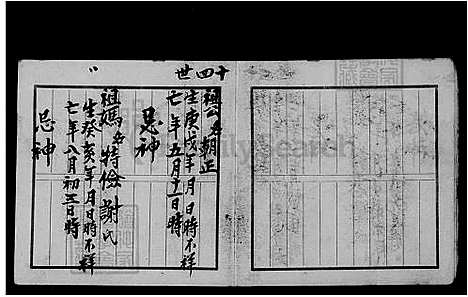 十四世
祖公名朝正
生庚戌年月日時
亡年五月十二日時
忌神
祖媽名特儉謝氏
生癸亥年月日時不祥
亡年八月初三日時
忌神